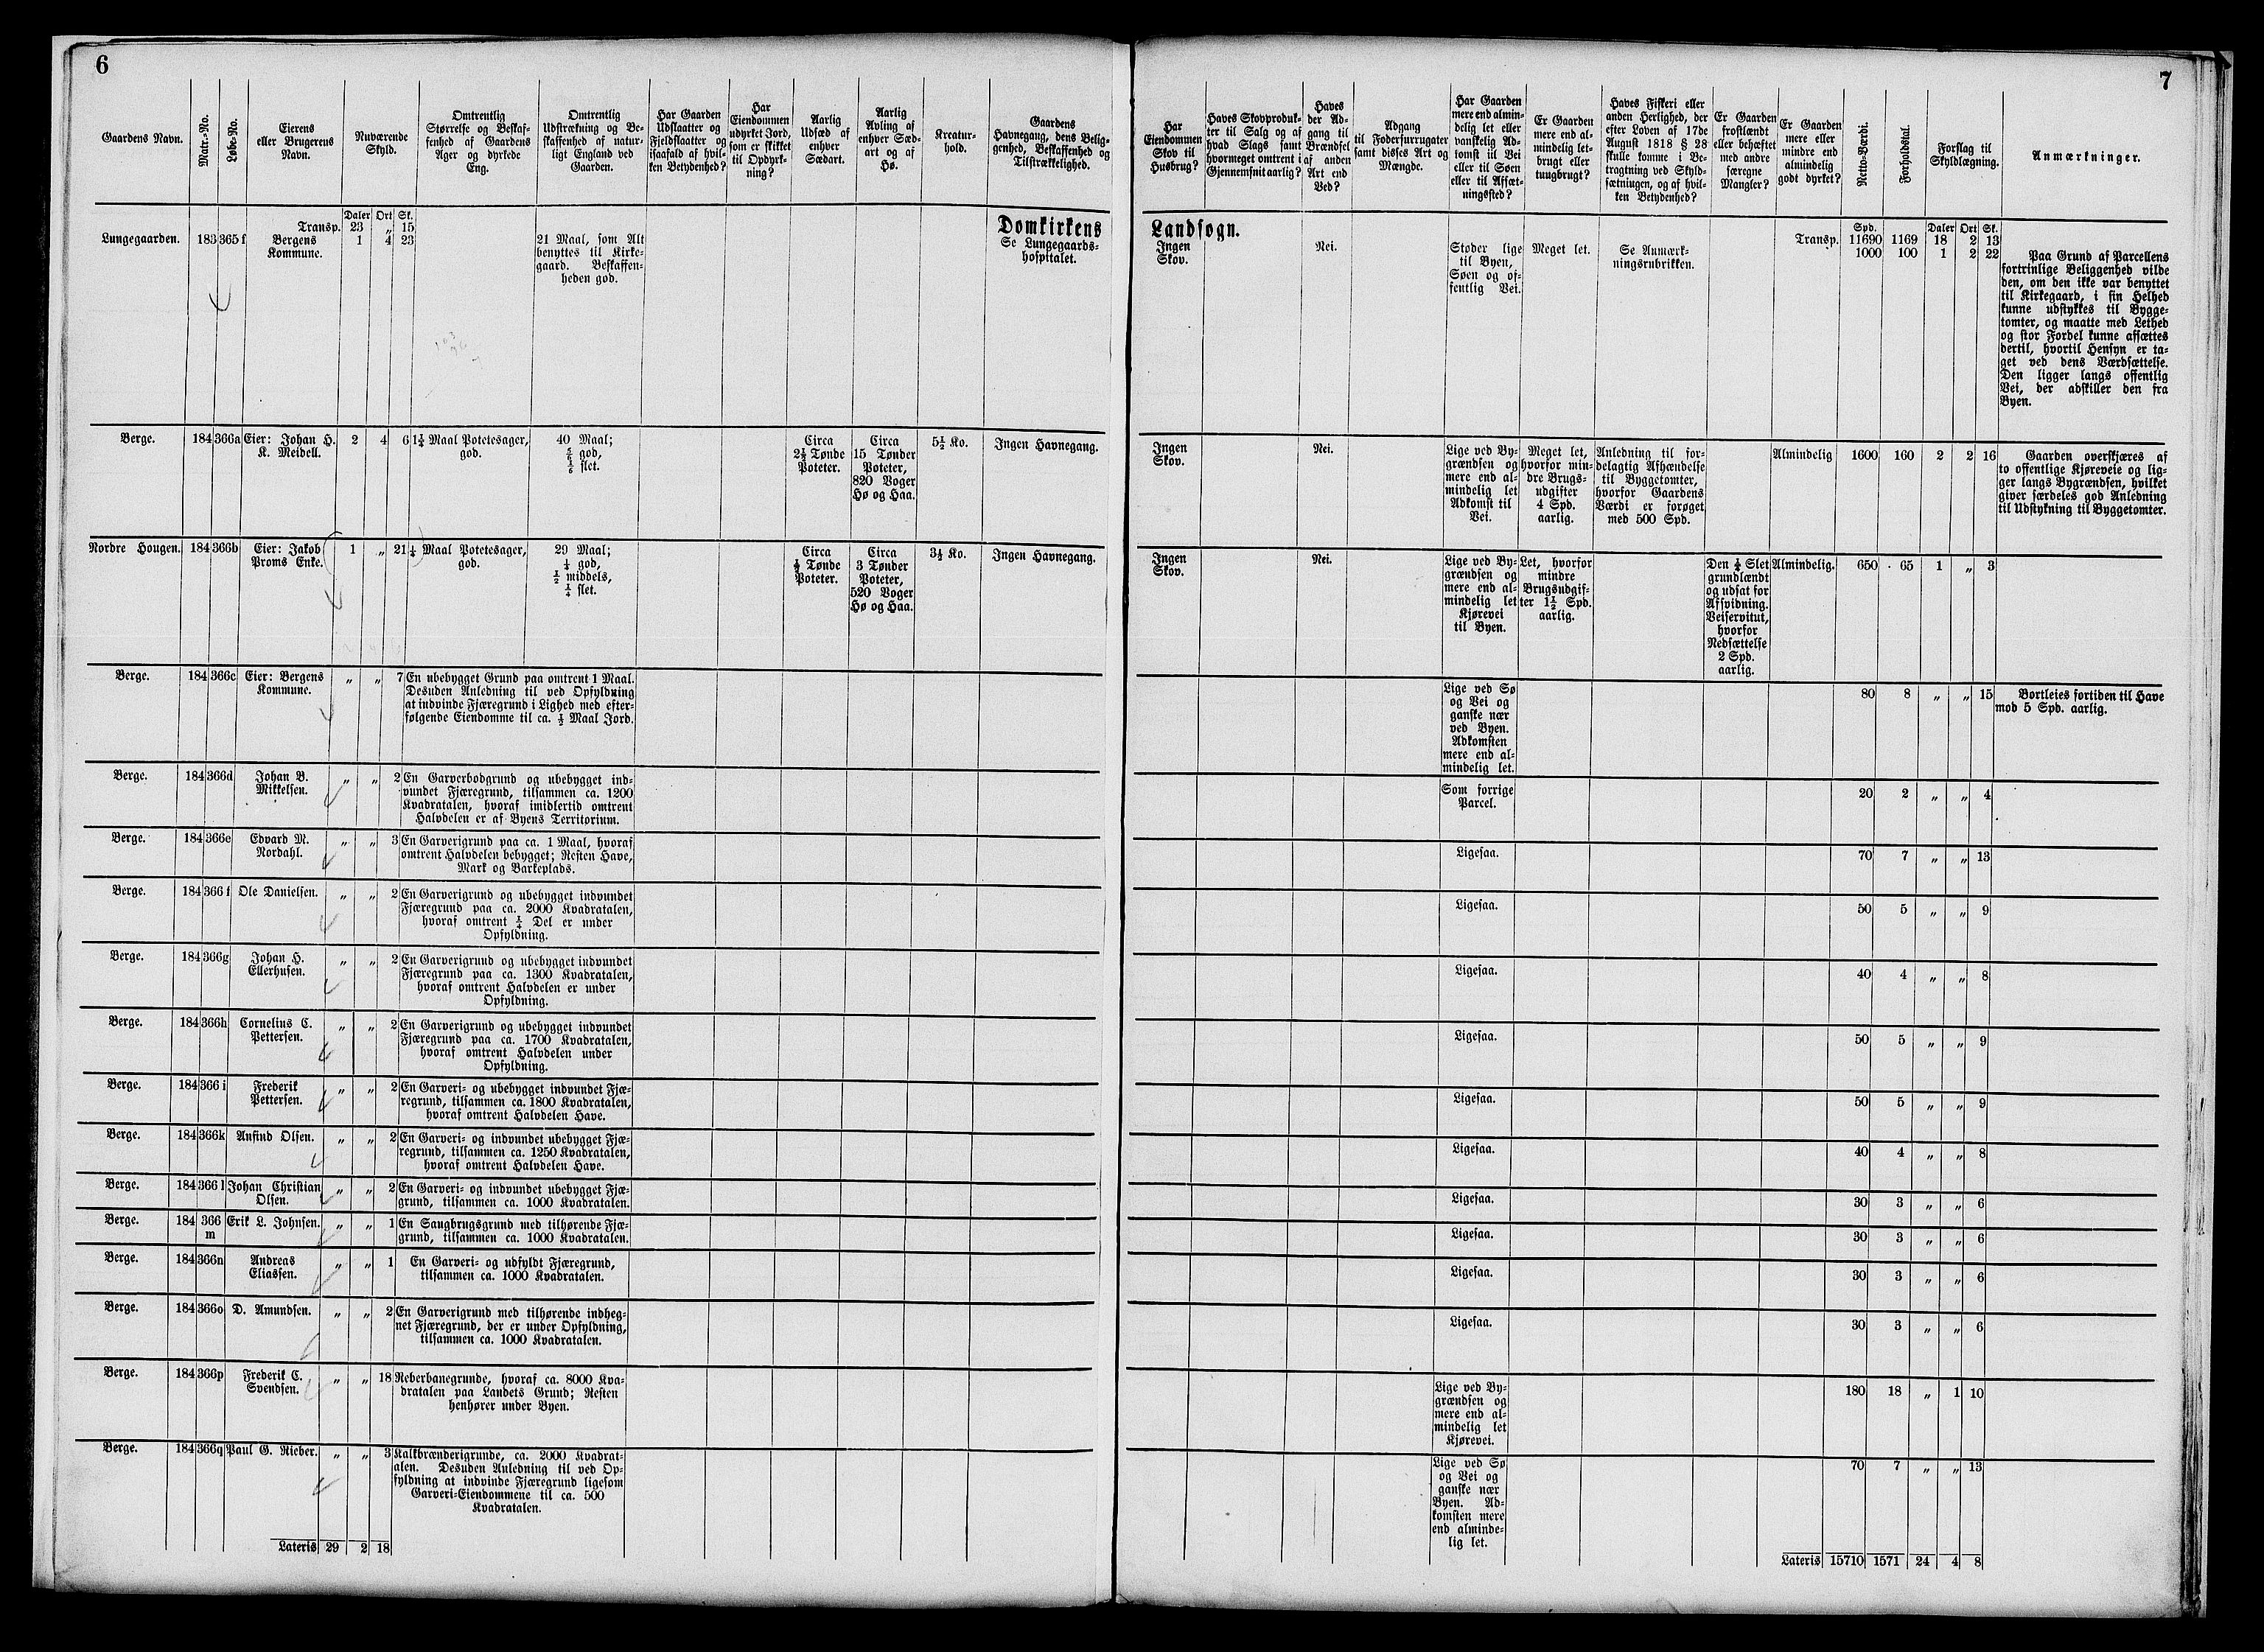 6
Gaardens Navn.
Matr.-No.
Løbe-No.
Eierens
eller Brugerens
Navn.
Nuværende
Skyld.
Omtrentlig
Størrelse og Beskaf-
fenhed af Gaardens
Ager og dyrkede
Eng.
Omtrentlig
Udstrækning og Be-
skaffenhed af natur-
ligt England ved
Gaarden.
Har Gaarden
Udslaatter og
Fjeldslaatter og
isaafald af hvil-
ken Betydenhed?
Har
Eiendommen
udyrket Jord,
som er skikket
til Opdyrk-
ning?
Aarlig
Udsæd af
enhver
Sædart.
Aarlig
Avling af
enhver Sæd-
art og af
Hø.
Kreatur-
hold.
Gaardens
Havnegang, dens Belig-
genhed, Beskaffenhed og
Tilstrækkelighed.
Daler Ort Sk.
Transp. 23 „ 15
Domkirkens
Lungegaarden. 183 365 f Bergens
Kommune.
1 4 23
21 Maal, som Alt
benyttes til Kirke-
gaard. Beskaffen-
heden god.
Se Lungegaards-
hospitalet.
Berge. 184 366a Eier: Johan H.
K. Meidell.
2 4 6
1½ Maal Potetesager,
god.
40 Maal;
⅚ god,
⅙ slet.
Circa
2½ Tønde
Poteter.
Circa
15 Tønder
Poteter,
820 Voger
Hø og Haa.
5½ Ko.
Ingen Havnegang.
Nordre Hougen. 184 366b Eier: Jakob
Proms Enke.
1 „ 21
¼ Maal Potetesager,
god.
29 Maal;
¼ god,
½ middels,
¼ slet.
Circa
½ Tønde
Poteter.
Circa
3 Tønder
Poteter,
520 Voger
Hø og Haa.
3½ Ko.
Ingen Havnegang.
Berge. 184 366c Eier: Bergens
Kommune.
„ „ 7
En ubebygget Grund paa omtrent 1 Maal.
Desuden Anledning til ved Opfyldning
at indvinde Fjæregrund i Lighed med efter-
følgende Eiendomme til ca. ½ Maal Jord.
Berge. 184 366d Johan B.
Mikkelsen.
„ „ 2
En Garverbodgrund og ubebygget ind-
vundet Fjæregrund, tilsammen ca. 1200
Kvadratalen, hvoraf imidlertid omtrent
Halvdelen er af Byens Territorium.
Berge. 184 366e Edvard M.
Nordahl.
„ „ 3
En Garverigrund paa ca. 1 Maal, hvoraf
omtrent Halvdelen bebygget; Resten Have,
Mark og Barkeplads.
Berge. 184 366 f Ole Danielsen. „ „ 2
En Garverigrund og ubebygget indvundet
Fjæregrund paa ca. 2000 Kvadratalen,
hvoraf omtrent ¼ Del er under
Opfyldning.
Berge. 184 366g Johan H.
Ellerhusen.
„ „ 2
En Garverigrund og ubebygget indvundet
Fjæregrund paa ca. 1300 Kvadratalen,
hvoraf omtrent Halvdelen er under
Opfyldning.
Berge. 184 366h Cornelius C.
Pettersen.
„ „ 2
En Garverigrund og ubebygget indvundet
Fjæregrund paa ca. 1700 Kvadratalen,
hvoraf omtrent Halvdelen under
Opfyldning.
Berge. 184 366 i Frederik
Pettersen.
„ „ 2
En Garveri- og ubebygget indvundet Fjæ-
regrund, tilsammen ca. 1800 Kvadratalen,
hvoraf omtrent Halvdelen Have.
Berge. 184 366k Anfind Olsen. „ „ 2
En Garveri- og indvundet ubebygget Fjæ-
regrund, tilsammen ca. 1250 Kvadratalen,
hvoraf omtrent Halvdelen Have.
Berge. 184 366 l Johan Christian
Olsen.
„ „ 2
En Garveri- og indvundet ubebygget Fjæ-
grund, tilsammen ca. 1000 Kvadratalen.
Berge. 184 366
m
Erik L. Johnsen. „ „ 1
En Saugbrugsgrund med tilhørende Fjæ-
grund, tilsammen ca. 1000 Kvadratalen.
Berge. 184 366n Andreas
Eliassen.
„ „ 1
En Garveri- og udfyldt Fjæregrund,
tilsammen ca. 1000 Kvadratalen.
Berge. 184 366o D. Amundsen. „ „ 2
En Garverigrund med tilhørende indheg-
net Fjæregrund, der er under Opfyldning,
tilsammen ca. 1000 Kvadratalen.
Berge. 184 366p Frederik C.
Svendsen.
„ „ 18
Reberbanegrunde, hvoraf ca. 8000 Kva-
dratalen paa Landets Grund; Resten
henhører under Byen.
Berge. 184 366q Paul G. Rieber. „ „ 3
Kalkbrænderigrunde, ca. 2000 Kvadrat-
alen. Desuden Anledning til ved Op-
fyldning at indvinde Fjæregrund ligesom
Garveri-Eiendommene til ca. 500
Kvadratalen.
Lateris 29 2 18
7
Har
Eiendommen
Skov til
Husbrug?
Haves Skovproduk-
ter til Salg og af
hvad Slags samt
hvormeget omtrent i
Gjennemsnit aarlig?
Haves
der Ad-
gang til
Brændsel
af anden
Art end
Ved?
Adgang
til Foderfurrugater
samt disses Art og
Mængde.
Har Gaarden
mere end almin-
delig let eller
vanskelig Ad-
komst til Vei
eller til Søen
eller til Afsæt-
ningssted?
Er Gaarden
mere end al-
mindelig let-
brugt eller
tungbrugt?
Haves Fiskeri eller
anden Herlighed, der
efter Loven af 17de
August 1818 § 28
skulle komme i Be-
tragtning ved Skyld-
sætningen, og af hvil-
ken Betydenhed?
Er Gaarden
frostlændt
eller behæftet
med andre
færegne
Mangler?
Er Gaarden
mere eller
mindre end
almindelig
godt dyrket?
Netto-Værdi.
Forholdstal.
Forslag til
Skyldlægning.
Anmærkninger.
Landsogn.
Spd. Daler Ort Sk.
Transp. 11690 1169 18 2 13
Ingen
Skov.
Nei.
Støder lige
til Byen,
Søen og of-
fentlig Vei.
Meget let.
Se Anmærk-
ningsrubrikken.
1000 100 1 2 22
Paa Grund af Parcellens
fortrinlige Beliggenhed vilde
den, om den ikke var benyttet
til Kirkegaard, i sin Helhed
kunne udstykkes til Bygge-
tomter, og maatte med Lethed
og stor Fordel kunne afsættes
dertil, hvortil Hensyn er ta-
get ved dens Værdsættelse.
Den ligger langs offentlig
Vei, der adskiller den fra
Byen.
Ingen
Skov.
Nei.
Lige ved By-
grændsen og
mere end al-
mindelig let
Adkomst til
Vei.
Meget let,
hvorfor min-
dre Brugs-
udgifter
4 Spd.
aarlig.
Anledning til for-
delagtig Afhændelse
til Byggetomter,
hvorfor Gaardens
Værdi er forøget
med 500 Spd.
Almindelig 1600 160 2 2 16
Gaarden overskjæres af
to offentlige Kjøreveie og lig-
ger langs Bygrændsen, hvilket
giver særdeles god Anledning
til Udstykning til Byggetomter.
Ingen
Skov.
Nei.
Lige ved By-
grændsen og
mere end al-
mindelig let
Kjørevei
til Byen.
Let, hvorfor
mindre
Brugsudgif-
ter 1½ Spd.
aarlig.
Den ¼ Slet
grundlændt
og udsat for
Afsvidning.
Veiservitut,
hvorfor
Nedsættelse
2 Spd.
aarlig.
Almindelig. 650 65 1 „ 3
Lige ved Sø
og Vei og
ganske nær
ved Byen.
Adkomsten
mere end al-
mindelig let.
80 8 „ „ 15
Bortleies fortiden til Have
mod 5 Spd. aarlig.
Som forrige
Parcel.
20 2 „ „ 4
Ligesaa. 70 7 „ „ 13
Ligesaa. 50 5 „ „ 9
Ligesaa. 40 4 „ „ 8
Ligesaa. 50 5 „ „ 9
Ligesaa. 50 5 „ „ 9
Ligesaa. 40 4 „ „ 8
Ligesaa. 30 3 „ „ 6
Ligesaa. 30 3 „ „ 6
Ligesaa. 30 3 „ „ 6
Ligesaa. 30 3 „ „ 6
Lige ved By-
grændsen og
mere end al-
mindelig let
Kjørevei.
180 18 „ 1 10
Lige ved Sø
og Vei og
ganske nær
Byen. Ad-
komsten mere
end alminde-
lig let.
70 7 „ „ 13
Lateris 15710 1571 24 4 8